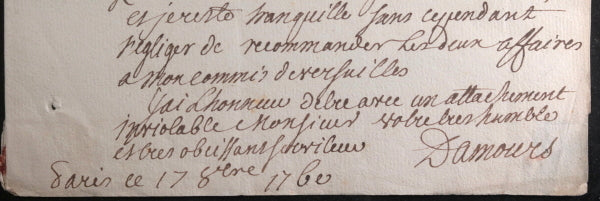 et je reste tranquille sans cependant
negliger de recommander les deux affaires
a mon commis de versailles
J'ai L'honneur d'Etre avec un attachement
inviolable Monsieur Votre tres humble
et tres obeissant serviteur Damours
Paris ce 17 8bre 1760